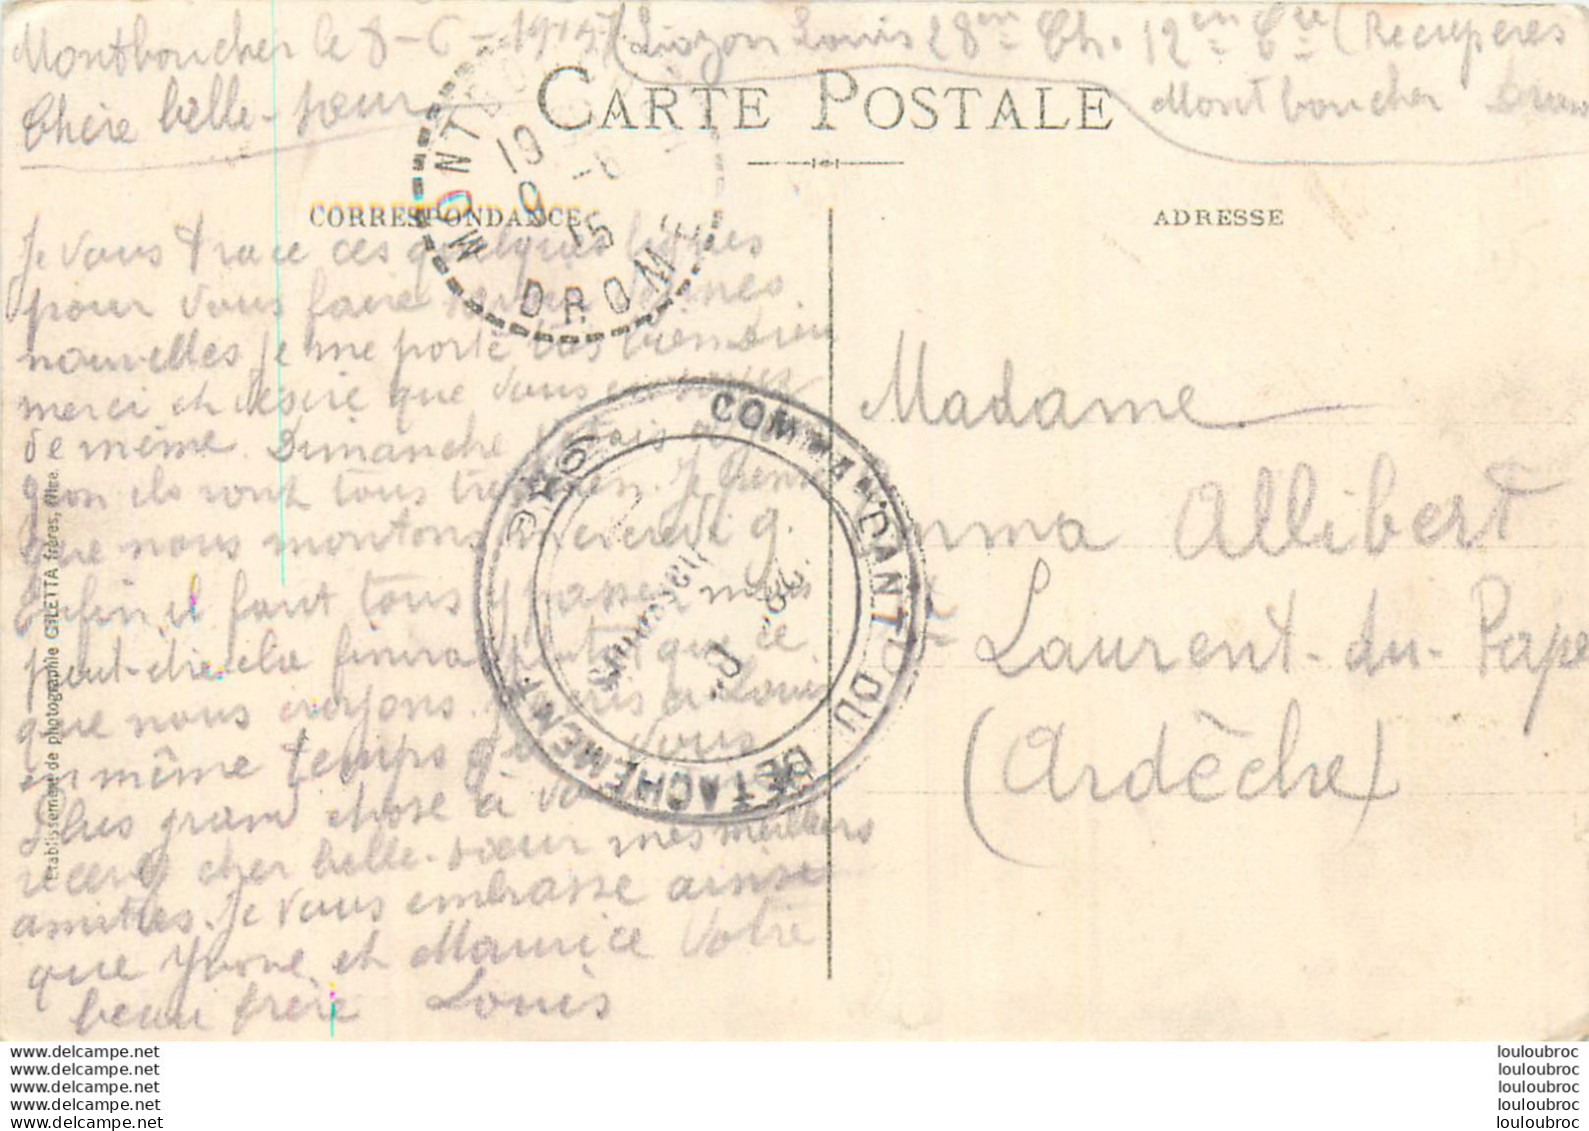 Montboucher le 8-6-1915 (Liozon Louis 28me Ch. 12me Cie (Recuperes
Montboucher Drom
Chère belle-soeur
CARTE POSTALE
CORRESPONDANCE
ADRESSE
MONTBOUCHER
19
9 -6
15
DROME
Je vous trace ces quelques lignes
pour vous faire de mes
nouvelles je me porte très bien Dieu
merci et desire que vous en soyez
de même. Dimanche j'étais à
ils vont tous très bien. Je pense
que nous montons mercredi 9.
Enfin il faut tous y passer mais
peut-être cela finira plutôt que ce
que nous croyons. J'écris à Louis
en même temps qu'à vous
Plus grand chose à vous
recevez cher belle-soeur mes meilleurs
amitiés. Je vous embrasse ainsi
que Yvone et Maurice Votre
beau frère Louis
COMMANDANT DU DETACHEMENT
Madame
Emma Allibert
St Laurent-du-Pape
(Ardèche)
Etablissement de photographie GILETTA frères, Nice.
www.delcampe.net
www.delcampe.net
www.delcampe.net
www.delcampe.net
www.delcampe.net
louloubroc
louloubroc
louloubroc
louloubroc
louloubroc